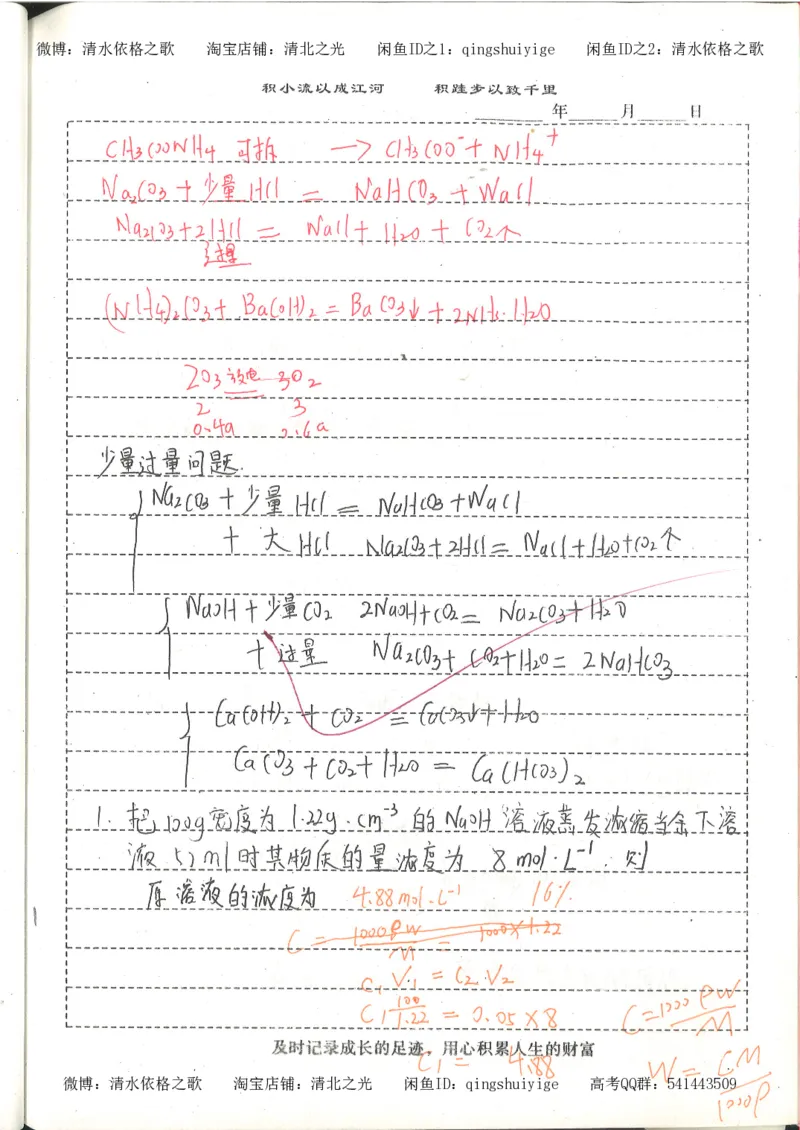 微博：清水依格之歌 淘宝店铺：清北之光 闲鱼ID之1：qingshuiyige 闲鱼ID之2：清水依格之歌
积小流以成江河 积跬步以致千里
年 月 日
CH3COONH4 可拆 → CH3COO⁻ + NH4⁺
Na2CO3 + 少量 HCl = NaHCO3 + NaCl
Na2CO3 + 2HCl = NaCl + H2O + CO2↑
过量
(NH4)2CO3 + Ba(OH)2 = BaCO3↓ + 2NH3·H2O
2O3 放电 3O2
2 3
0.4a 0.6a
少量过量问题.
Na2CO3 + 少量 HCl = NaHCO3 + NaCl
+ 大 HCl Na2CO3 + 2HCl = NaCl + H2O + CO2↑
NaOH + 少量 CO2 2NaOH + CO2 = Na2CO3 + H2O
+ 过量 Na2CO3 + CO2 + H2O = 2NaHCO3
Ca(OH)2 + CO2 = CaCO3↓ + H2O
CaCO3 + CO2 + H2O = Ca(HCO3)2
1. 把100g密度为1.22g·cm⁻³的NaOH溶液蒸发浓缩当余下溶
液50ml时其物质的量浓度为 8mol·L⁻¹. 则
原溶液的浓度为 4.88mol·L⁻¹ 16%.
C = 1000ρW/M = 1000×1.22
C1V1 = C2V2
C1 100/1.22 = 0.05×8 C = 1000ρW/M
及时记录成长的足迹，用心积累人生的财富
C1 = 4.88 W = CM/1000ρ
微博：清水依格之歌 淘宝店铺：清北之光 闲鱼ID：qingshuiyige 高考QQ群：541443509